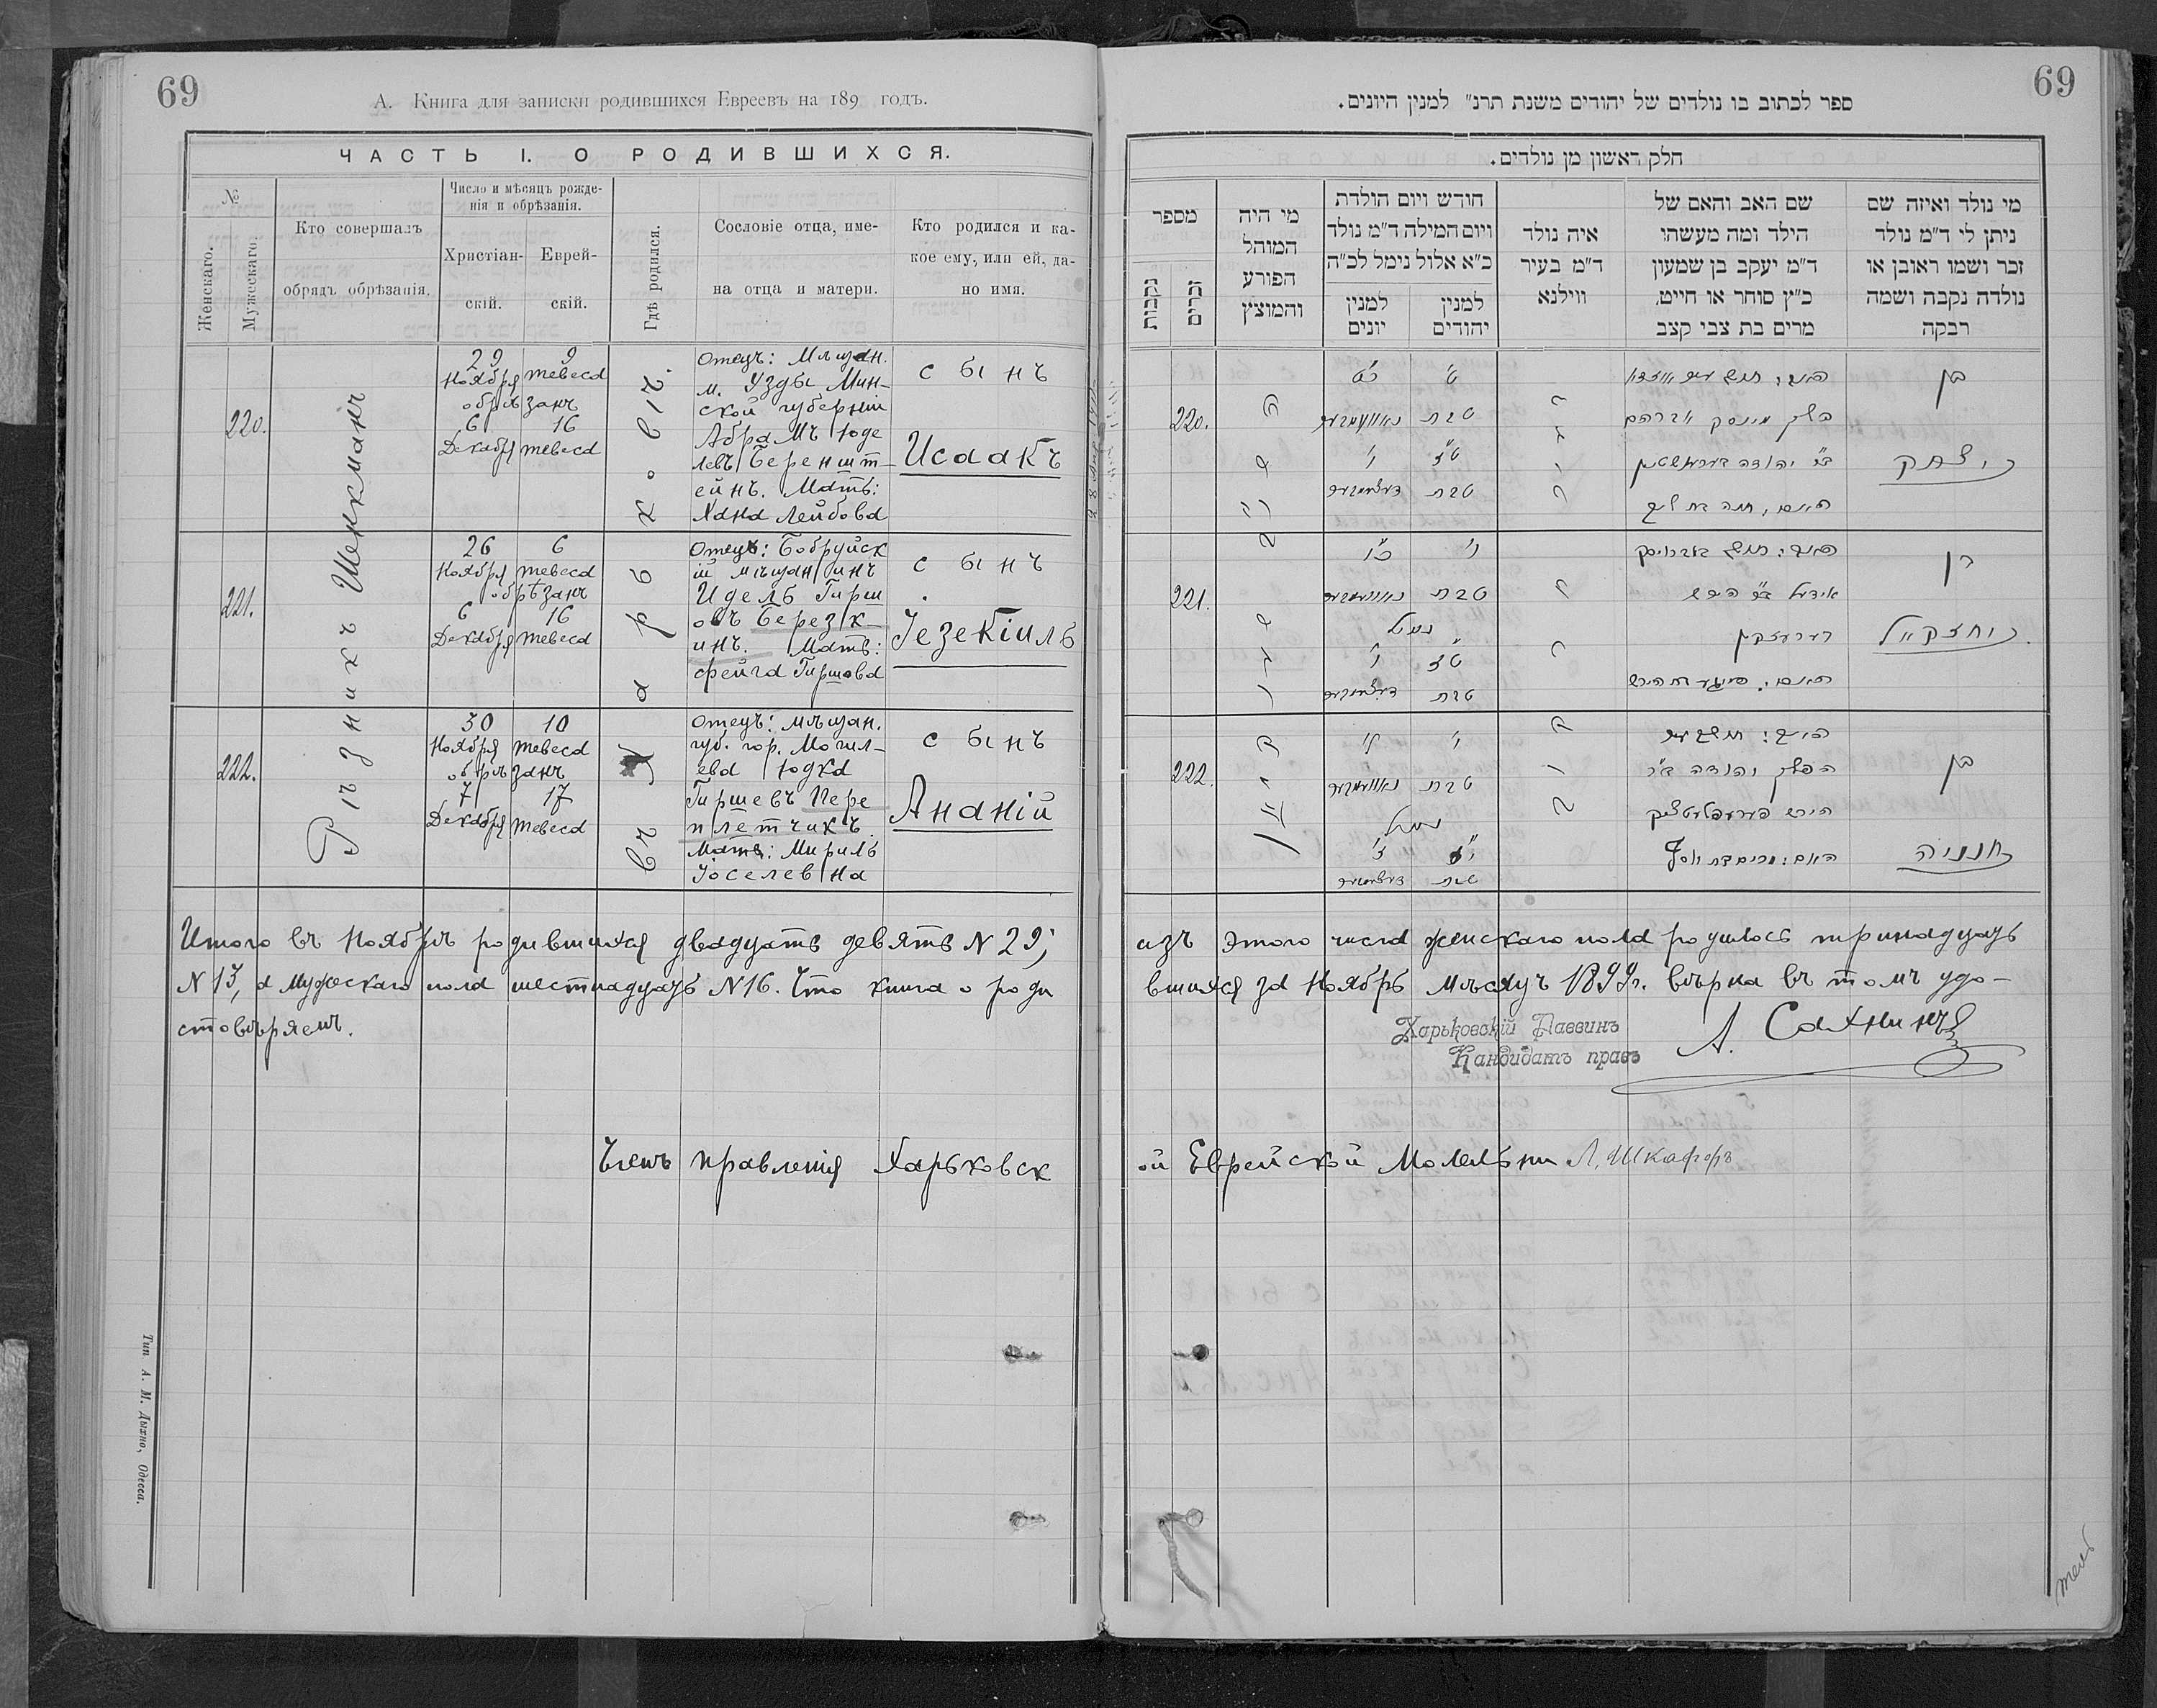 69
А. Книга для записки родившихся Евреевъ на 189 годъ.
ЧАСТЬ I. О РОДИВШИХСЯ.
№
Женскаго.
Мужескаго.
Кто совершалъ
обрядъ обрѣзанія.
Число и мѣсяцъ рожде-
нія и обрѣзанія.
Христіан-
скій.
Еврей-
скій.
Гдѣ родился.
Сословіе отца, име-
на отца и матери.
Кто родился и ка-
кое ему, или ей, да-
но имя.
Рѣзникъ Шенкманъ
въ г. Харьковѣ
220.
29 9
Ноября тевеса
обрѣзанъ
6 16
Декабря тевеса
Отецъ: Мѣщан.
м. Узды Мин-
ской губерніи
Абрамъ Юде
левъ Береншт-
ейнъ. Мать:
Хана Лейбова
сынъ
Исаакъ
221.
26 6
Ноября тевеса
обрѣзанъ
6 16
Декабря тевеса
Отецъ: Бобруйск
ій мѣщанинъ
Идель Гирш
овъ Березк-
инъ. Мать:
Фейга Гиршова
сынъ
Іезекіиль
222.
30 10
Ноября тевеса
обрѣзанъ
7 17
Декабря тевеса
Отецъ: мѣщан.
губ. гор. Могил-
ева Юдка
Гиршевъ Пере
плетчикъ.
Мать: Мириль
Іоселевна
сынъ
Ананій
Итого въ Ноябрѣ родившихся двадцать девять N 29;
N 13, а мужескаго пола шестнадцать N 16. Что книга о роди
стовѣряемъ.
Членъ правленія Харьковск
Тип А. М. Дыхно, Одесса.
69
ספר לכתוב בו נולדים של יהודים משנת תרנ״ למנין היונים.
חלק ראשון מן נולדים.
מי נולד ואיזה שם
ניתן לי ד״מ נולד
זכר ושמו ראובן או
נולדה נקבה ושמה
רבקה
שם האב והאם של
הילד ומה מעשתו
ד״מ יעקב בן שמעון
כ״ץ סוחר או חייט,
מרים בת צבי קצב
איה נולד
ד״מ בעיר
ווילנא
חודש ויום הולדת
ויום המילה ד״מ נולד
כ״א אלול נימל לכ״ה
למנין
יהודים
למנין
יונים
מי היה
המוהל
הפורע
והמוצץ
מספר
זכרים
נקבות
220.
ט׳ כ״ט
טבת נאוועמבער
ט״ז ו׳
טבת דעצעמבער
בן
יצחק
221.
ו׳ כ״ו
טבת נאוועמבער
נימול
ט״ז ו׳
טבת דעצעמבער
בן
יחזקאל
222.
י׳ ל׳
טבת נאוועמבער
נימול
י״ז ז׳
טבת דעצעמבער
בן
חנניה
изъ этого числа женскаго пола родилось тринадцать
вшихся за Ноябрь мѣсяцъ 1899г. вѣрна въ томъ удо-
Харьковскій Раввинъ
Кандидатъ правъ
А. Сахнинъ
ой Еврейской Молельни Л. Шкафоръ